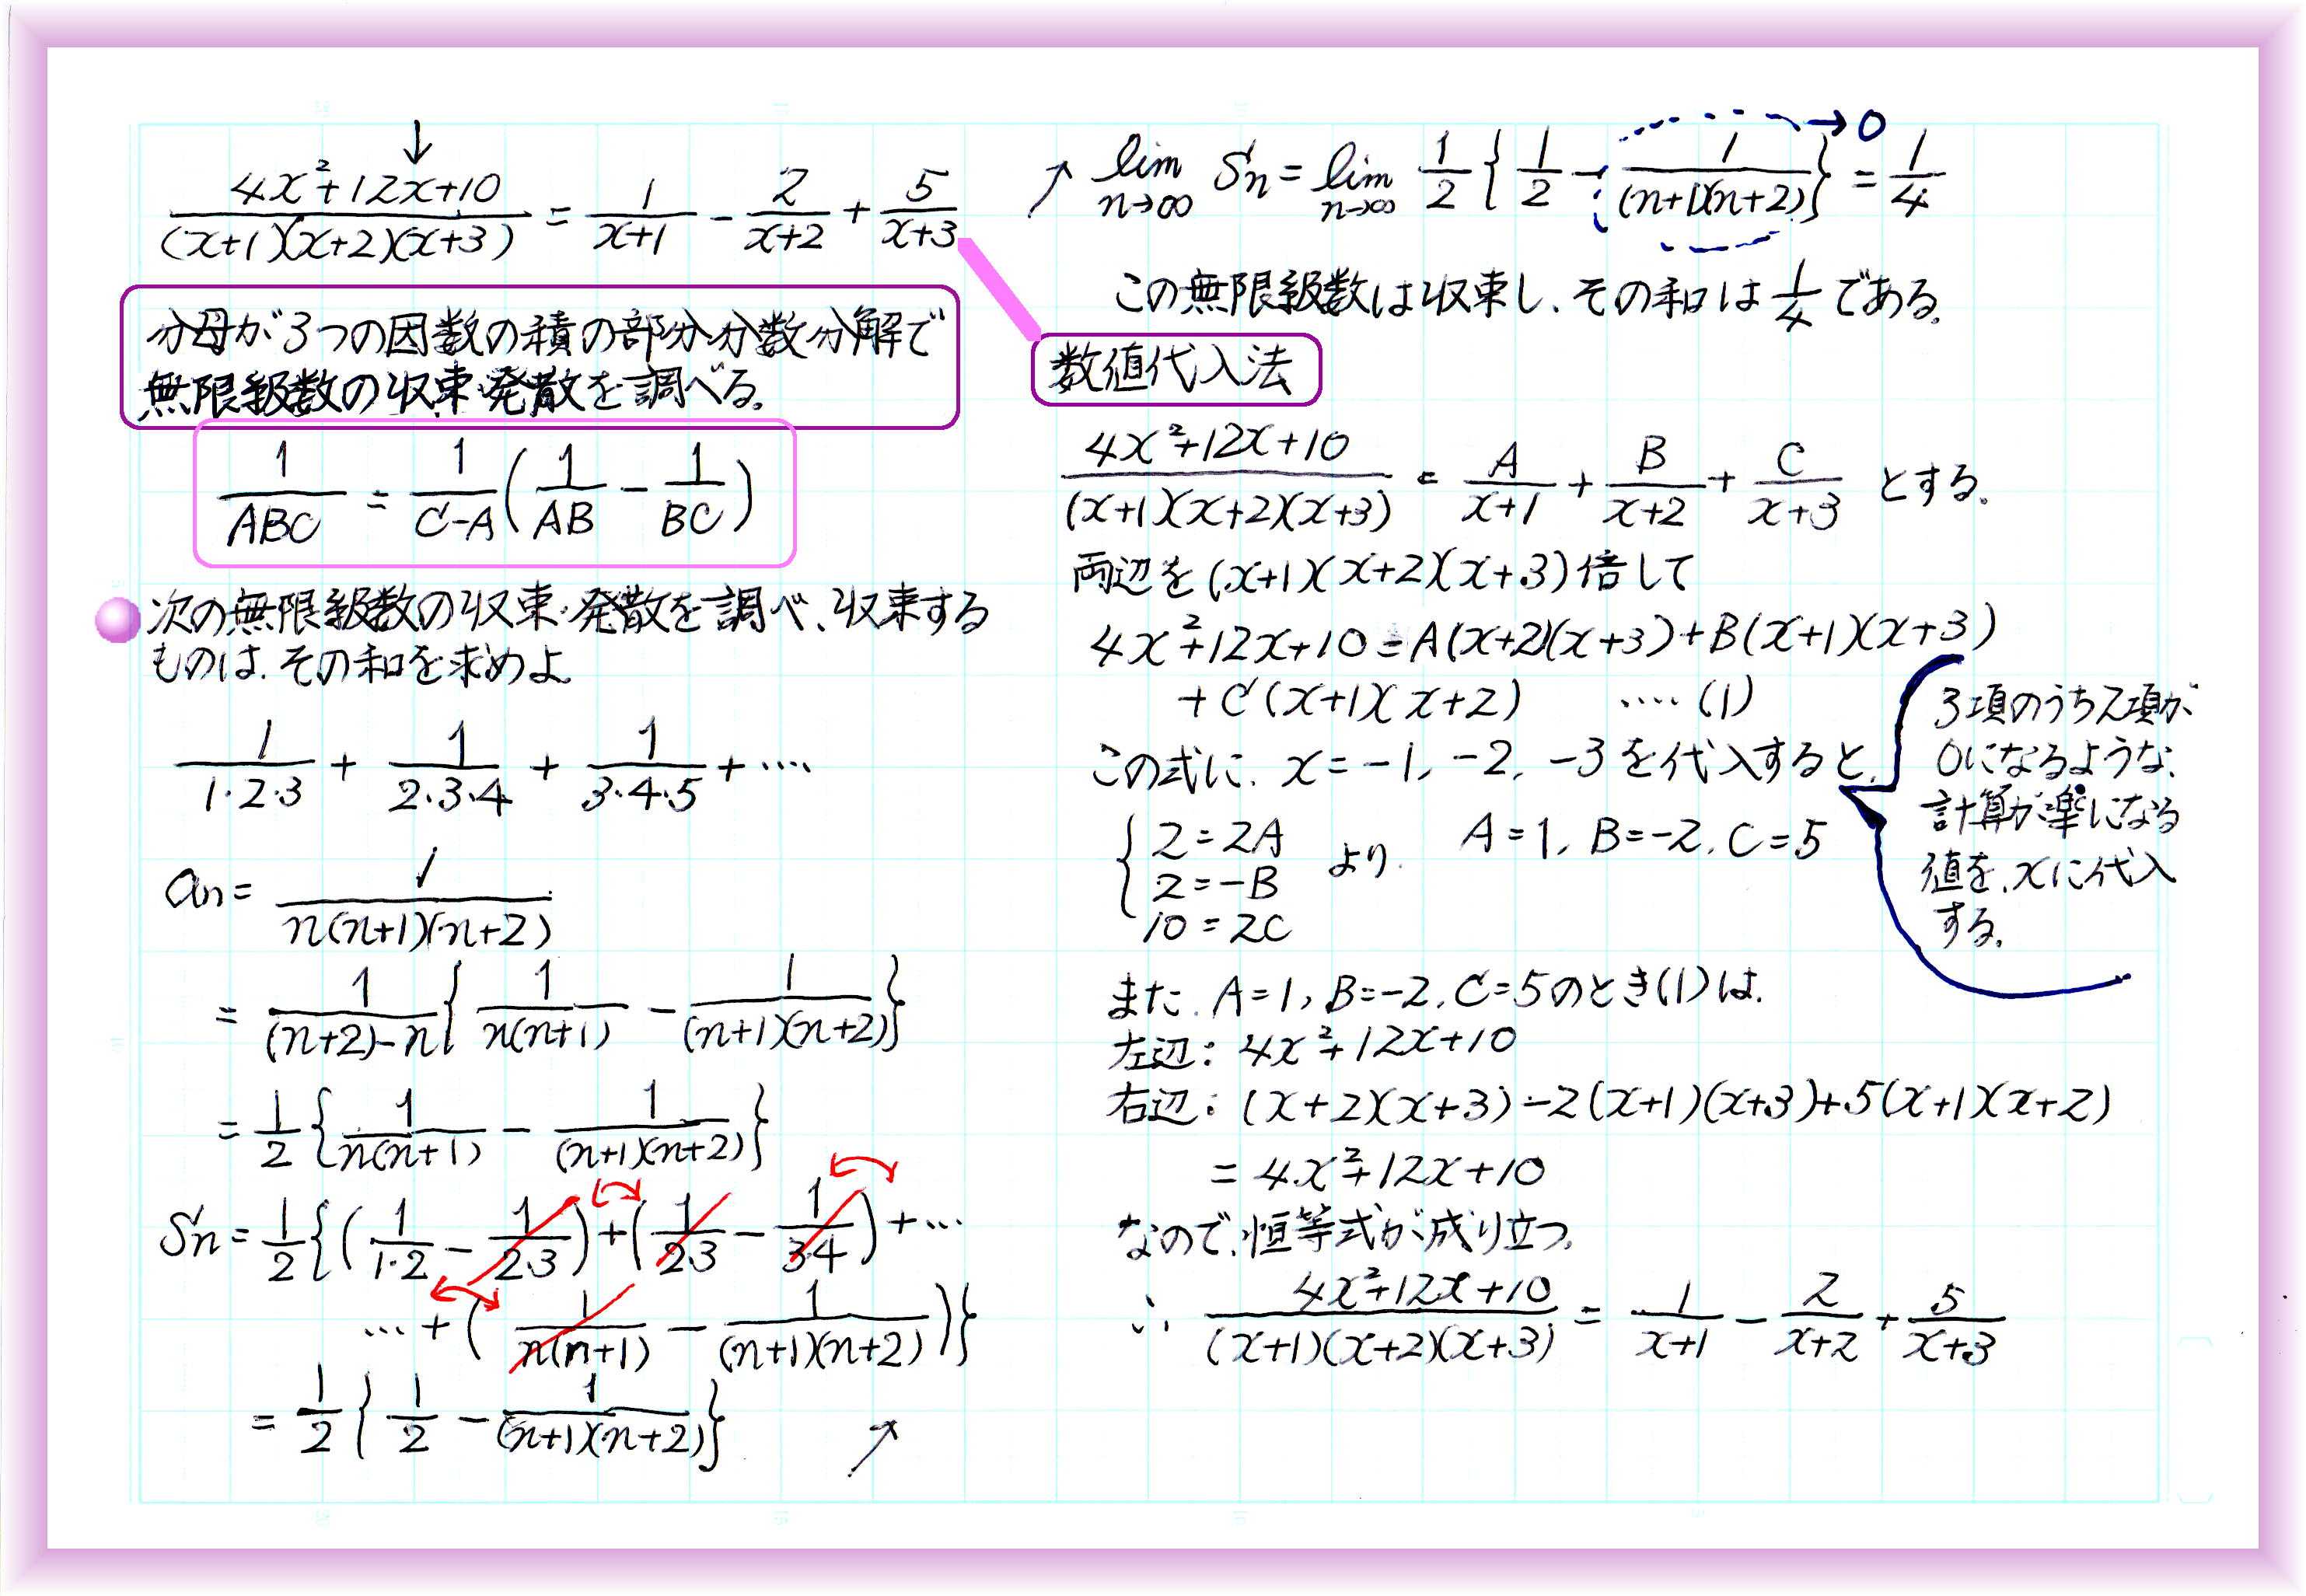 ↓
(4x²+12x+10)/((x+1)(x+2)(x+3)) = 1/(x+1) - 2/(x+2) + 5/(x+3)
分母が3つの因数の積の部分分数分解で
無限級数の収束・発散を調べる。
1/(ABC) = 1/(C-A) (1/(AB) - 1/(BC))
次の無限級数の収束・発散を調べ、収束する
ものは、その和を求めよ
1/(1·2·3) + 1/(2·3·4) + 1/(3·4·5) + ····
an = 1/(n(n+1)(n+2))
= 1/((n+2)-n) {1/(n(n+1)) - 1/((n+1)(n+2))}
= 1/2 {1/(n(n+1)) - 1/((n+1)(n+2))}
Sn = 1/2 {(1/(1·2) - 1/(2·3)) + (1/(2·3) - 1/(3·4)) + ···
··· + (1/(n(n+1)) - 1/((n+1)(n+2)))}
= 1/2 {1/2 - 1/((n+1)(n+2))} ↗
↗ lim n→∞ Sn = lim n→∞ 1/2 {1/2 - 1/((n+1)(n+2))} = 1/4
→0
この無限級数は収束し、その和は1/4である。
数値代入法
(4x²+12x+10)/((x+1)(x+2)(x+3)) = A/(x+1) + B/(x+2) + C/(x+3) とする。
両辺を(x+1)(x+2)(x+3)倍して
4x²+12x+10 = A(x+2)(x+3)+B(x+1)(x+3)
+C(x+1)(x+2) ····(1)
この式に、x=-1, -2, -3を代入すると、
{2=2A
2=-B より、 A=1, B=-2, C=5
10=2C
3項のうち2項が
0になるような、
計算が楽になる
値を、xに代入
する。
また、A=1, B=-2, C=5のとき(1)は、
左辺: 4x²+12x+10
右辺: (x+2)(x+3)-2(x+1)(x+3)+5(x+1)(x+2)
=4x²+12x+10
なので、恒等式が成り立つ。
∴ (4x²+12x+10)/((x+1)(x+2)(x+3)) = 1/(x+1) - 2/(x+2) + 5/(x+3)